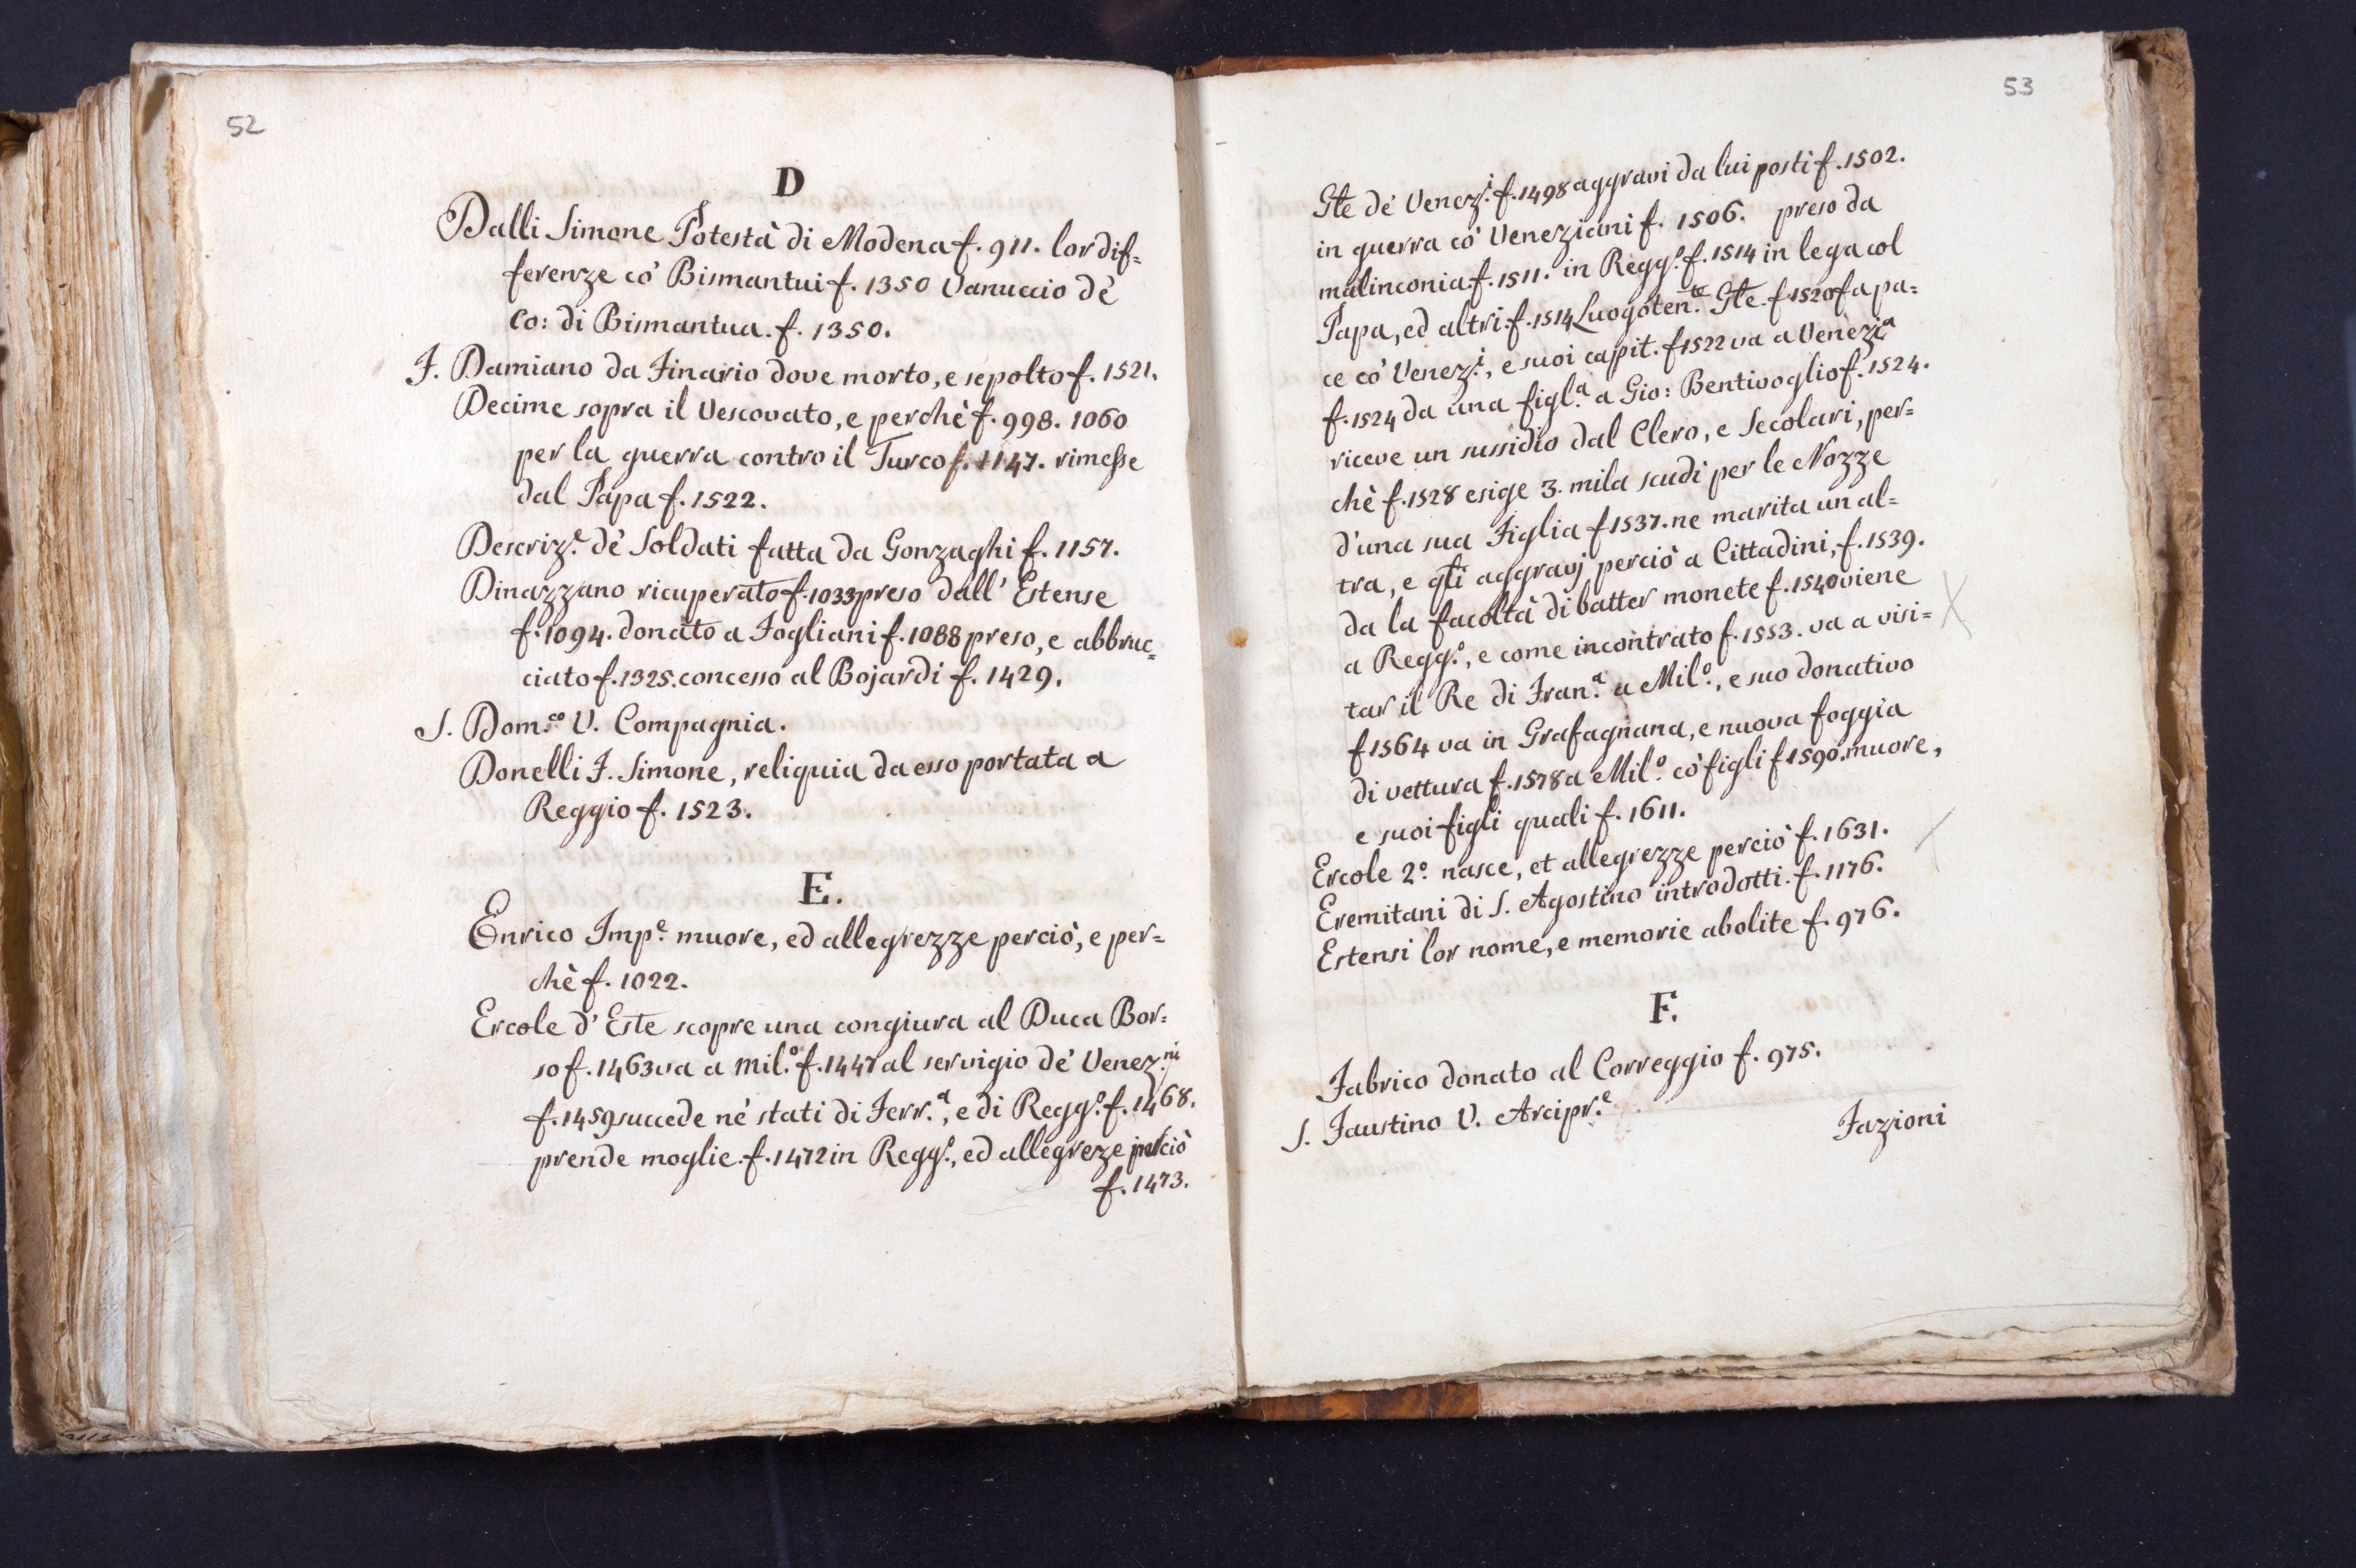 52
D
Dalli Simone Potestà di Modena f. 911. lor dif=
ferenze co' Bismantui f. 1350 Vanuccio de'
Co: di Bismantua. f. 1350.
F. Damiano da Finario dove morto, e sepolto f. 1521.
Decime sopra il Vescovato, e perchè f. 998. 1060
per la guerra contro il Turco f. 1147. rimesse
dal Papa f. 1522.
Descriz.e de' Soldati fatta da Gonzaghi f. 1157.
Dinazzano ricuperato f. 1033 preso dall' Estense
f. 1094. donato a Fogliani f. 1088 preso, e abbruc=
ciato f. 1325. concesso al Bojardi f. 1429.
S. Dom.co V. Compagnia.
Donelli F. Simone, reliquia da esso portata a
Reggio f. 1523.
E.
Enrico Imp.e muore, ed allegrezze perciò, e per=
chè f. 1022.
Ercole d' Este scopre una congiura al Duca Bor=
so f. 1463 va a Mil.o f. 1447 al servigio de' Venez.ni
f. 1459 succede ne' stati di Ferr.a, e di Regg.o f. 1468.
prende moglie. f. 1472 in Regg.o, ed allegreze perciò
f. 1473.
53
Gle de' Venez.i f. 1498 aggravi da lui posti f. 1502.
in guerra co' Veneziani f. 1506. preso da
malinconia f. 1511. in Regg.o f. 1514 in lega col
Papa, ed altri f. 1514 Luogoten.te Gle. f 1520 fa pa=
ce co' Venez.i, e suoi capit. f 1522 va a Venezia
f. 1524 da una figl.a a Gio: Bentivoglio f. 1524.
riceve un sussidio dal Clero, e Secolari, per=
chè f. 1528 esige 3. mila scudi per le Nozze
d'una sua Figlia f 1537. ne marita un al=
tra, e gli aggravj perciò a Cittadini, f. 1539.
da la facoltà di batter monete f. 1540 viene
a Regg.o, e come incontrato f. 1553. va a visi=
tar il Re di Fran.a a Mil.o, e suo donativo
f 1564 va in Grafagnana, e nuova foggia
di vettura f. 1578 a Mil.o co' figli f 1590. muore,
e suoi figli quali f. 1611.
Ercole 2.o nasce, et allegrezze perciò f. 1631.
Eremitani di S. Agostino introdotti. f. 1176.
Estensi lor nome, e memorie abolite f. 976.
F.
Fabrico donato al Correggio f. 975.
S. Faustino V. Arcipr.e
Fazioni